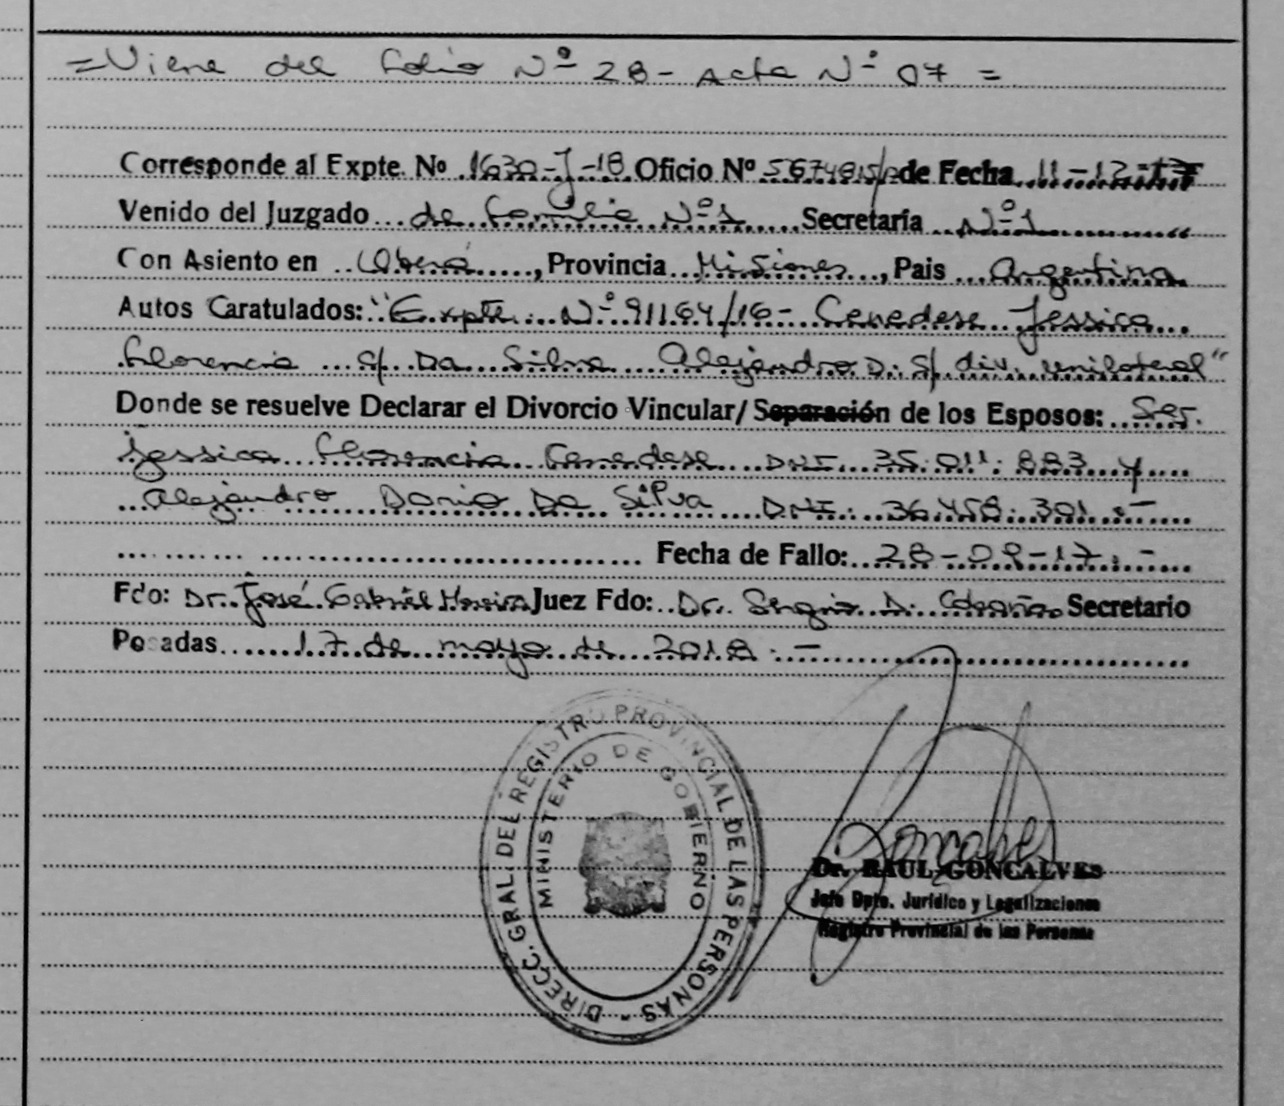 =Viene del folio Nº 28- Acta Nº 07 =
Corresponde al Expte. Nº 1630-J-18 Oficio Nº de Fecha 11-12-17
Venido del Juzgado de Familia Nº1 Secretaría Nº1
Con Asiento en Oberá, Provincia Misiones, Pais Argentina
Autos Caratulados: "Expte. Nº 91164/16- Cenedese Jessica
Florencia c/ Da Silva Alejandro D. s/ div. unilateral"
Donde se resuelve Declarar el Divorcio Vincular/ Separación de los Esposos: Sres.
Jessica Florencia Cenedese DNI 35.011.883 y
Alejandro Dario Da Silva DNI: 36.458.301.-
Fecha de Fallo: 28-09-17.-
Fdo: Dr. José Gabriel Moreira Juez Fdo: Dr. Sergio D. Secretario
Posadas 17 de mayo de 2018.-
DIRECC. GRAL. DEL REGISTRO PROVINCIAL DE LAS PERSONAS -
MINISTERIO DE GOBIERNO
Dr. RAUL GONCALVES
Jefe Dpto. Jurídico y Legalizaciones
Registro Provincial de las Personas